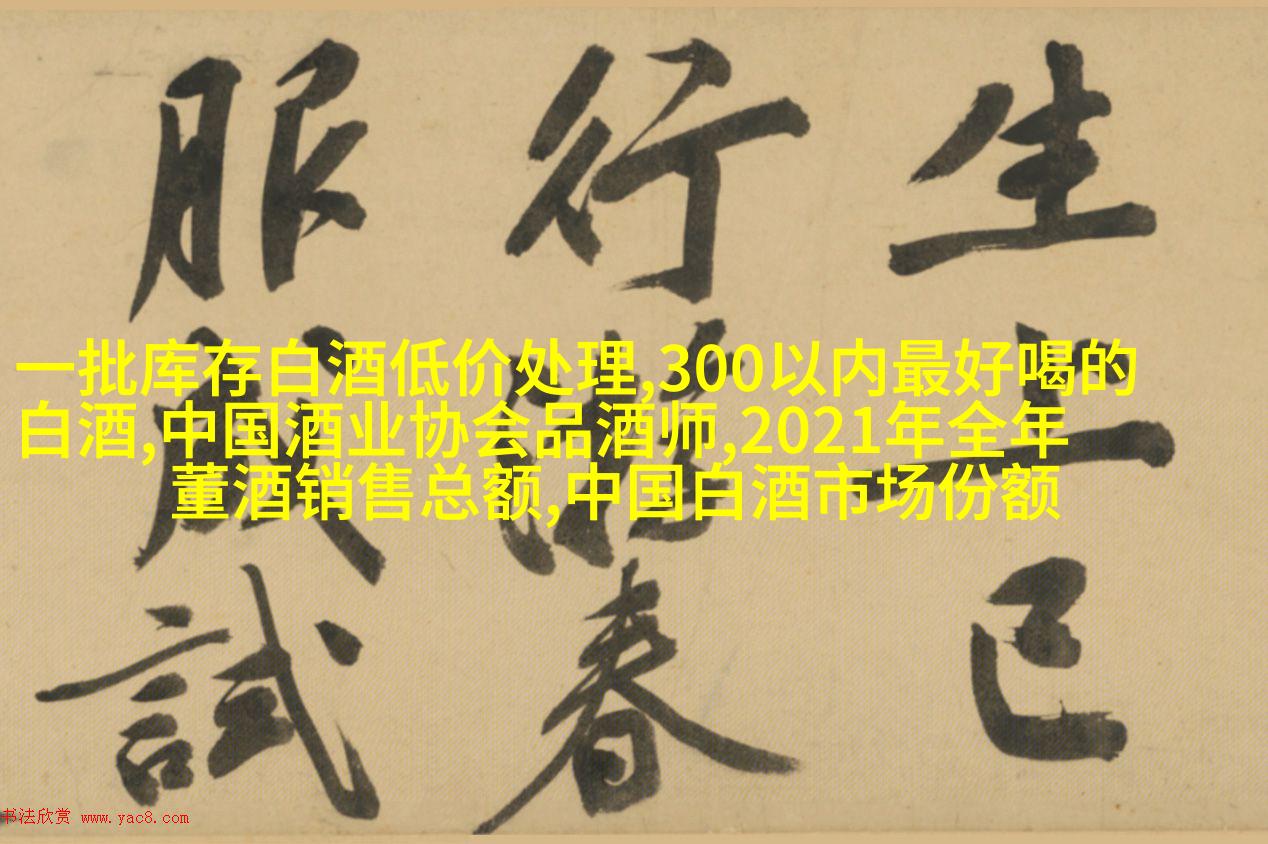 生上巳
行游春
服成試
一批库存白酒低价处理,300以内最好喝的
白酒,中国酒业协会品酒师,2021年全年
董酒销售总额,中国白酒市场份额
书法欣赏 www.yac8.com